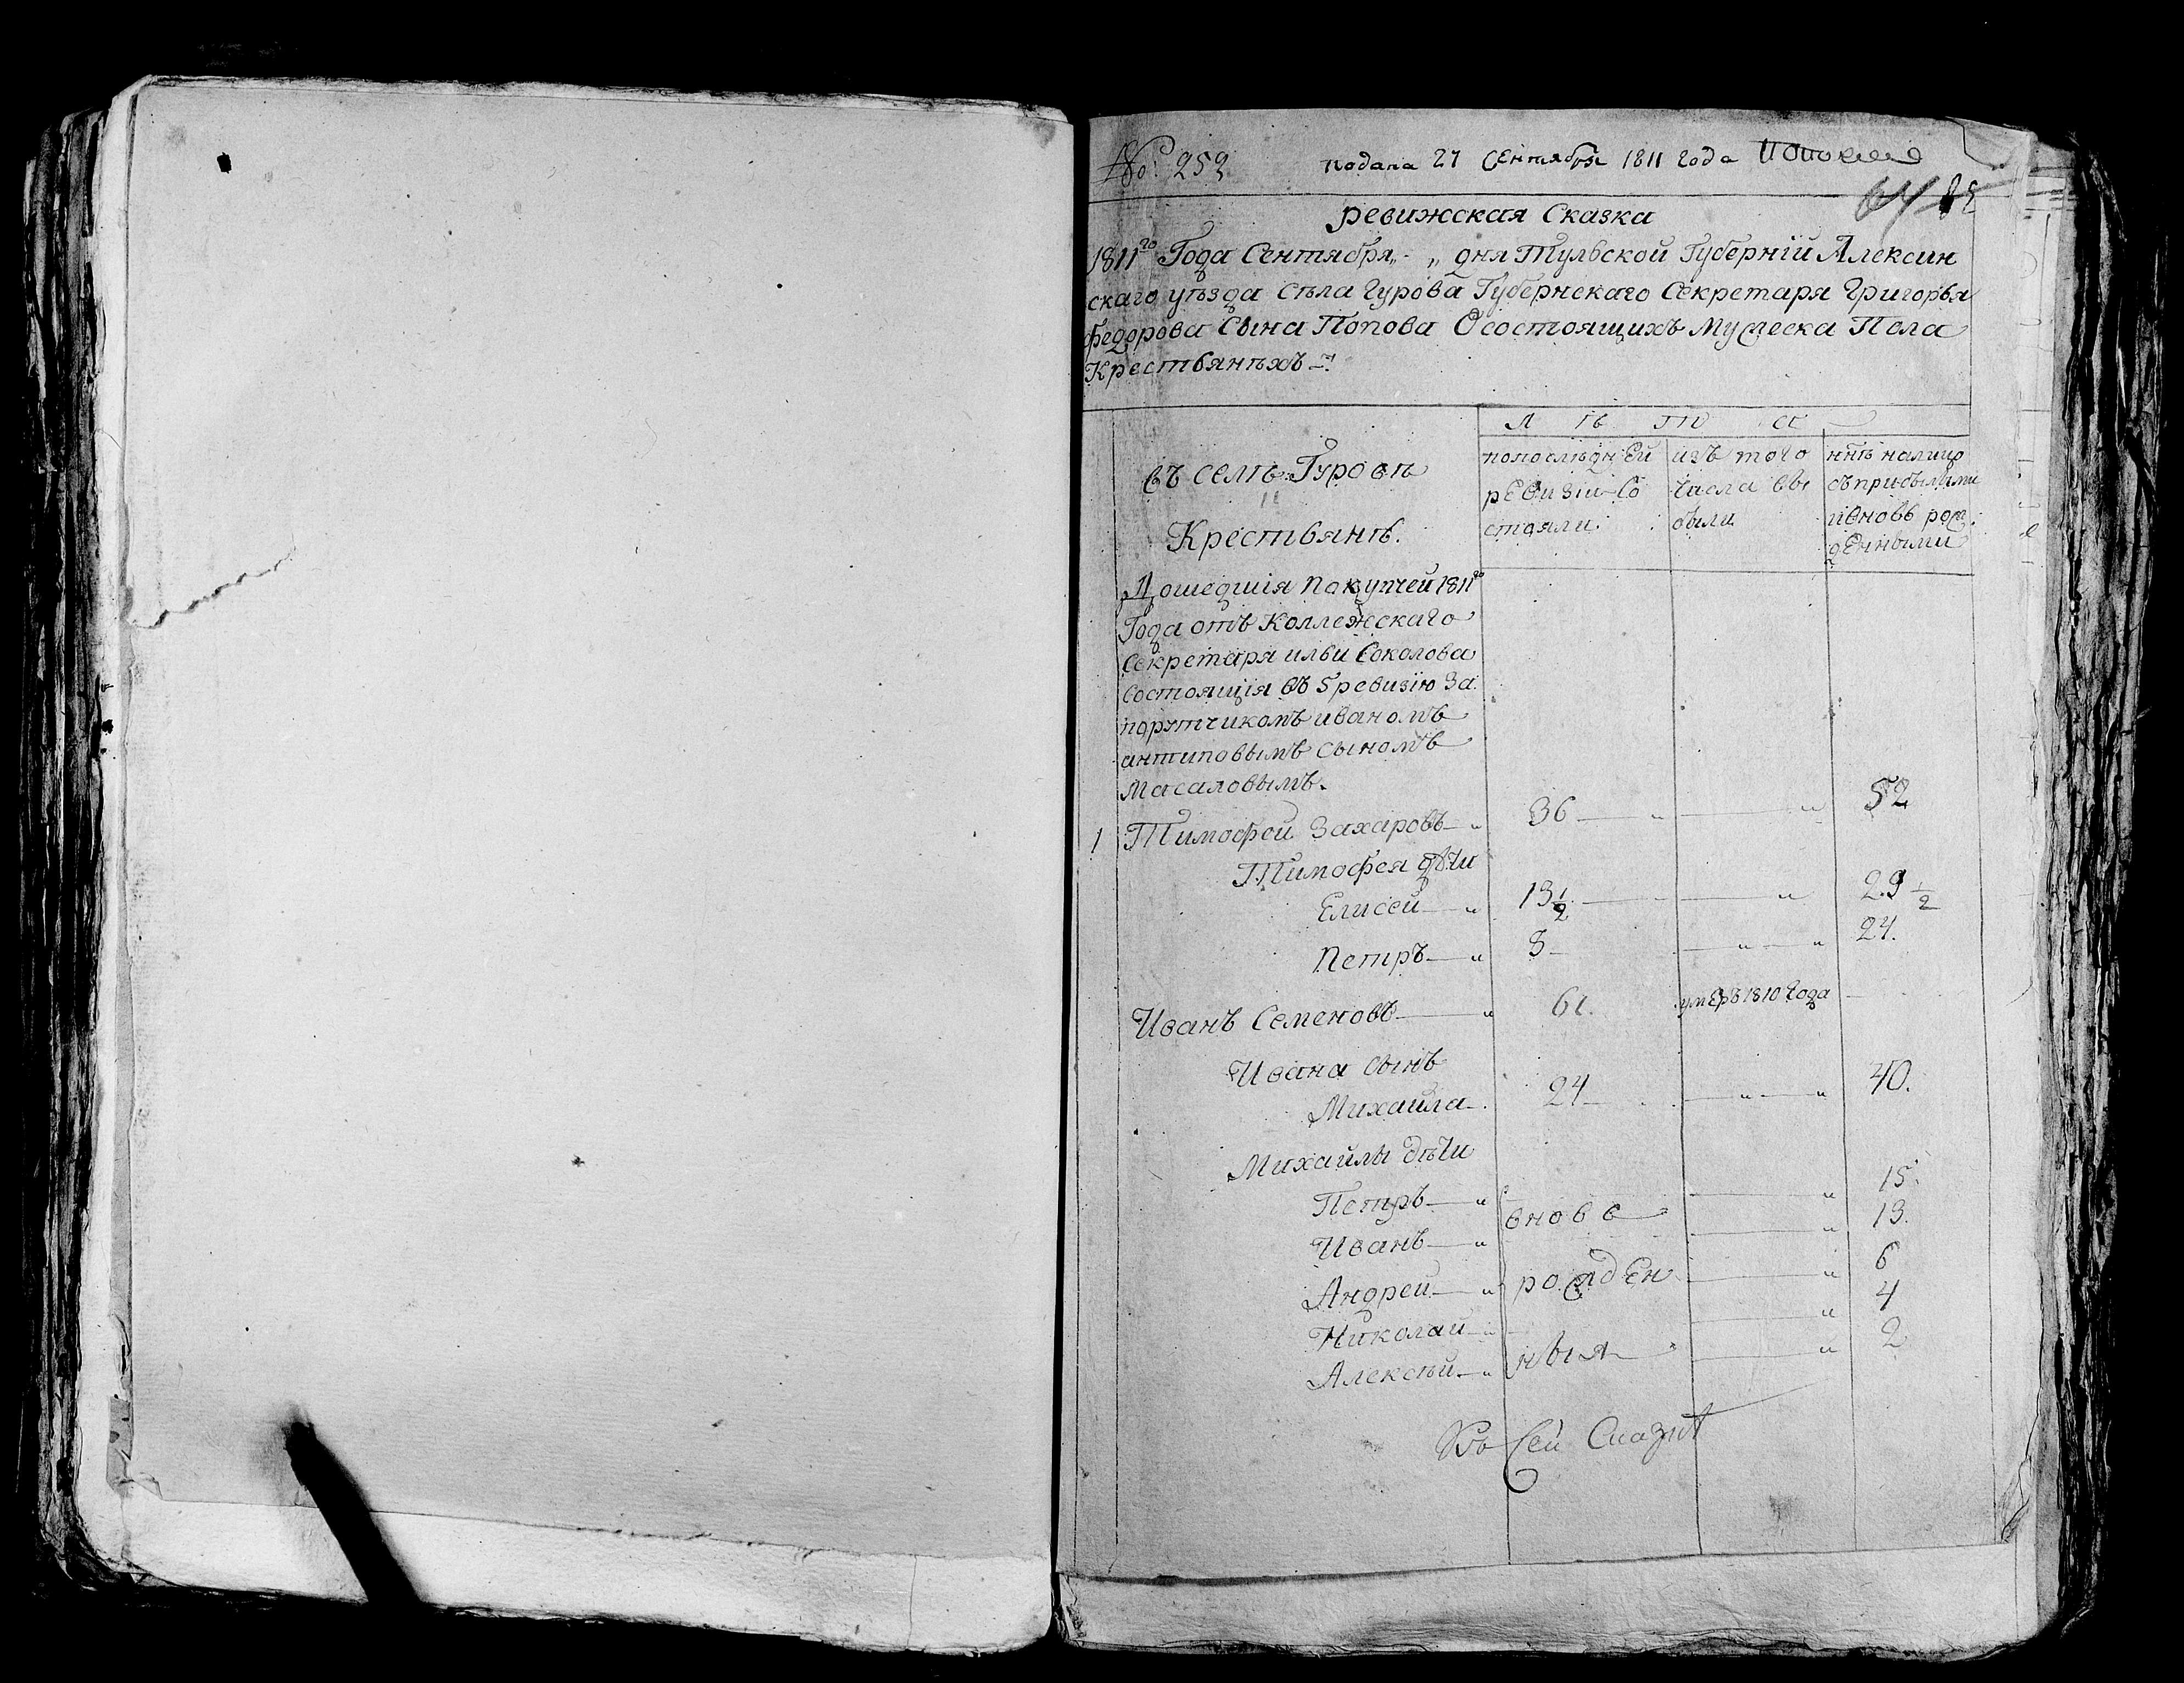 №: 252 подана 27 Сентября 1811 года
85
ревижская Сказка
1811го Года Сентября „ - „ дня Тульской Губерніи Алексин
скаго уѣзда Сѣла Гурова Губернскаго Секретаря Григорья
Федорова Сына Попова О состоящихъ Мужеска Пола
Крестьянѣхъ
Л ѣ т а
въ селѣ Гуровѣ
Крестьянѣ.
по послѣдней
ревизіи Со
стояли.
изъ того
Числа вы
были
ннѣ налицо
съ прибылыми
и вновь рож
денными
Дошедшія По купчей 1811го
Года отъ Коллежскаго
Секретаря ильи Соколова
Состоящія въ 5 ревизію За
порутчикомъ иваномъ
антиповымъ Сыномъ
Масаловымъ.
1 Тимофей Захаровъ — „ 36 — „ — „ 52
Тимофея дѣти
Елисей — „ 13 1/2 — — „ 29 1/2
Петръ — „ 8 — — „ — „ 24.
Иванъ Семеновъ — „ 61. умеръ 1810 Года —
Ивана Сынъ
Михайла — 24 — — „ — „ 40.
Михайлы дѣти
Петръ — „ — „ 15.
вновь
Иванъ — „ — „ 13.
Андрей — „ рожден — „ 6
Николай — „ — „ 4
Алексѣй — „ ныя — „ 2
Къ Сей Сказкѣ